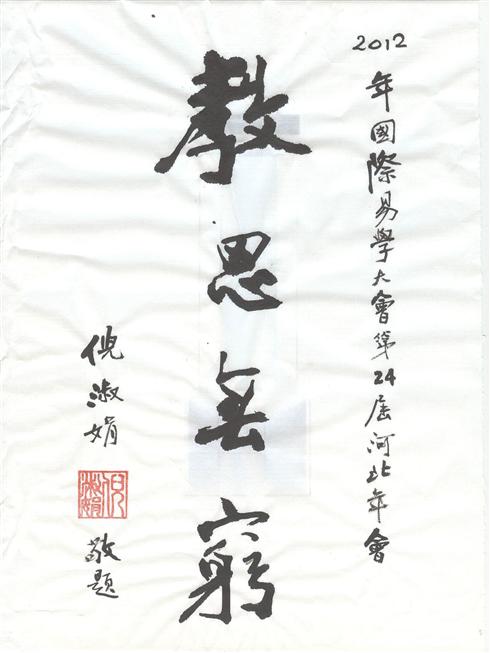 2012
年國際易學大會第24屆河北年會
教思無窮
倪淑娟
敬題
倪淑娟